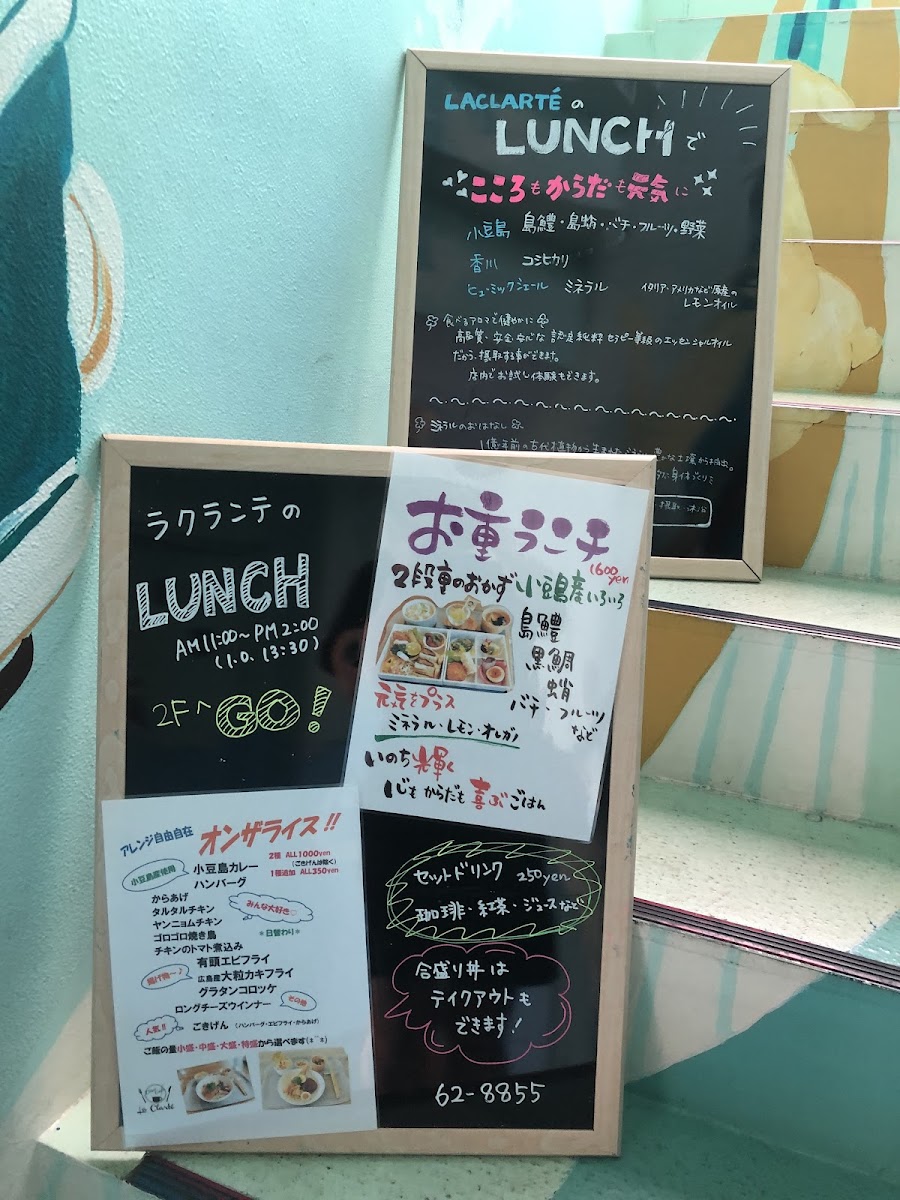 LACLARTÉ の
LUNCH で
こころもからだも元気に
小豆島 島鱧・島蛸・バチ・フルーツ・野菜
香川 コシヒカリ
ヒューミックシェール ミネラル
イタリア・アメリカなど原産の
レモンオイル
食べるアロマで健やかに
高品質・安全・安心な 認定純粋セラピー等級のエッセンシャルオイル
だから、摂取する事ができます。
店内でお試し体験もできます。
ミネラルのおはなし
1億年前の古代植物から生まれた
な土壌から抽出。
ラクランテの
LUNCH
AM11:00～PM2:00
(L.O. 13:30)
2Fへ GO!
お重ランチ
1600yen
2段重のおかず 小豆島産いろいろ
島鱧
黒鯛
蛸
バチ・フルーツ
など
元気をプラス
ミネラル・レモン・オレガノ
いのち輝く
心もからだも喜ぶごはん
アレンジ自由自在 オンザライス!!
2種 ALL1000yen
(ごきげんは除く)
1種追加 ALL350yen
小豆島産使用
小豆島カレー
ハンバーグ
からあげ
みんな大好き♡
タルタルチキン
ヤンニョムチキン
＊日替わり＊
ゴロゴロ焼き鳥
チキンのトマト煮込み
有頭エビフライ
揚げ物〜♪
広島産大粒カキフライ
グラタンコロッケ
その他
ロングチーズウインナー
人気!!
ごきげん (ハンバーグ・エビフライ・からあげ)
ご飯の量小盛・中盛・大盛・特盛から選べます
La Clarté
セットドリンク 250yen
珈琲・紅茶・ジュースなど
合盛り丼は
テイクアウトも
できます!
62-8855